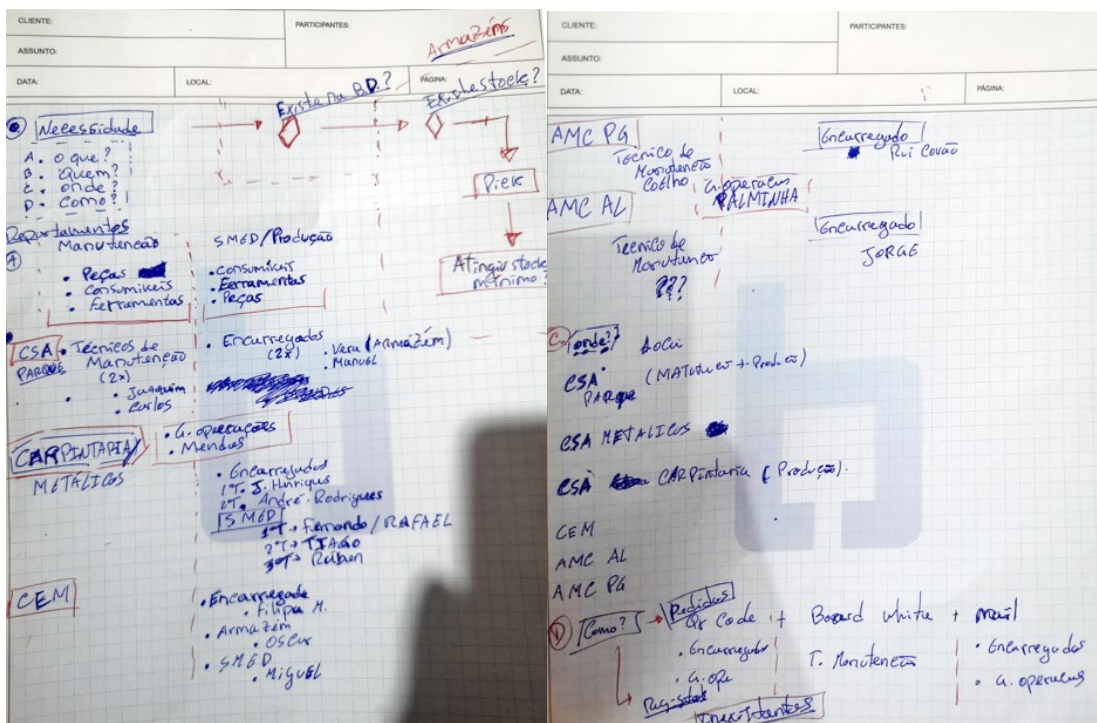 CLIENTE:
PARTICIPANTES:
ASSUNTO:
Armazéns
DATA:
LOCAL:
PÁGINA:
Existe na B.D.?
Existe stock?
Necessidade
A. O que?
B. Quem?
C. onde?
D. Como?
Pick
Departamentos
Manutenção
SMED/Produção
A
Atingiu stock mínimo?
• Peças
• Consumiveis
• Ferramentas
• Consumiveis
• Ferramentas
• Peças
CSA
PARQUE
• Técnicos de
Manutenção
(2x)
• Juaquim
• Carlos
• Encarregados
(2x)
• Vera (Armazém)
• Manuel
CARPINTARIA/
METÁLICOS
• G. operações
• Mendes
• Encarregados
1ºT. J. Henriques
2ºT. André Rodrigues
SMED
1ºT → Fernando / RAFAEL
2ºT → TIAGO
3ºT → Rúben
CEM
• Encarregada
• Filipa M.
• Armazém
• Oscar
• SMED
• Miguel
CLIENTE:
PARTICIPANTES:
ASSUNTO:
DATA:
LOCAL:
PÁGINA:
AMC PG
Tecnico de
Manutenção
Coelho
Encarregado
Rui Covão
G. operacas
PALMINHA
AMC AL
Tecnico de
Manutenco
???
Encarregado
JORGE
C. onde?
CSA
PARque
CSA METALICOS
CSA CARPintaria (Produção).
CEM
AMC AL
AMC PG
D
Como?
Pedidos
Qr Code + Board White + mail
• Encarregado
• G. ope
T. Manutencão
• Encarregados
• G. operacas
Registos